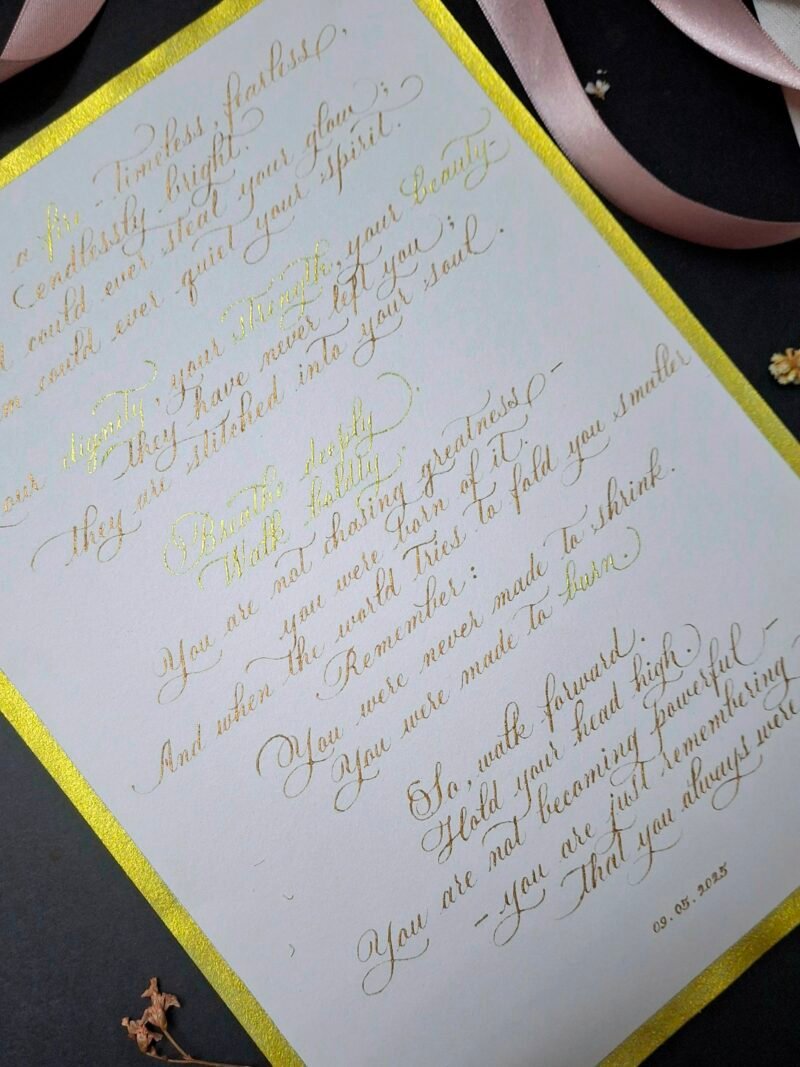 a fire - timeless, fearless,
endlessly bright.
could ever steal your glow;
could ever quiet your spirit.
dignity, your strength, your beauty-
they have never left you;
they are stitched into your soul.
Breathe deeply.
Walk boldly.
You are not chasing greatness -
you were born of it.
And when the world tries to fold you smaller
Remember:
You were never made to shrink.
You were made to burn.
So, walk forward.
Hold your head high.
You are not becoming powerful -
- you are just remembering
that you always were
09.05.2025